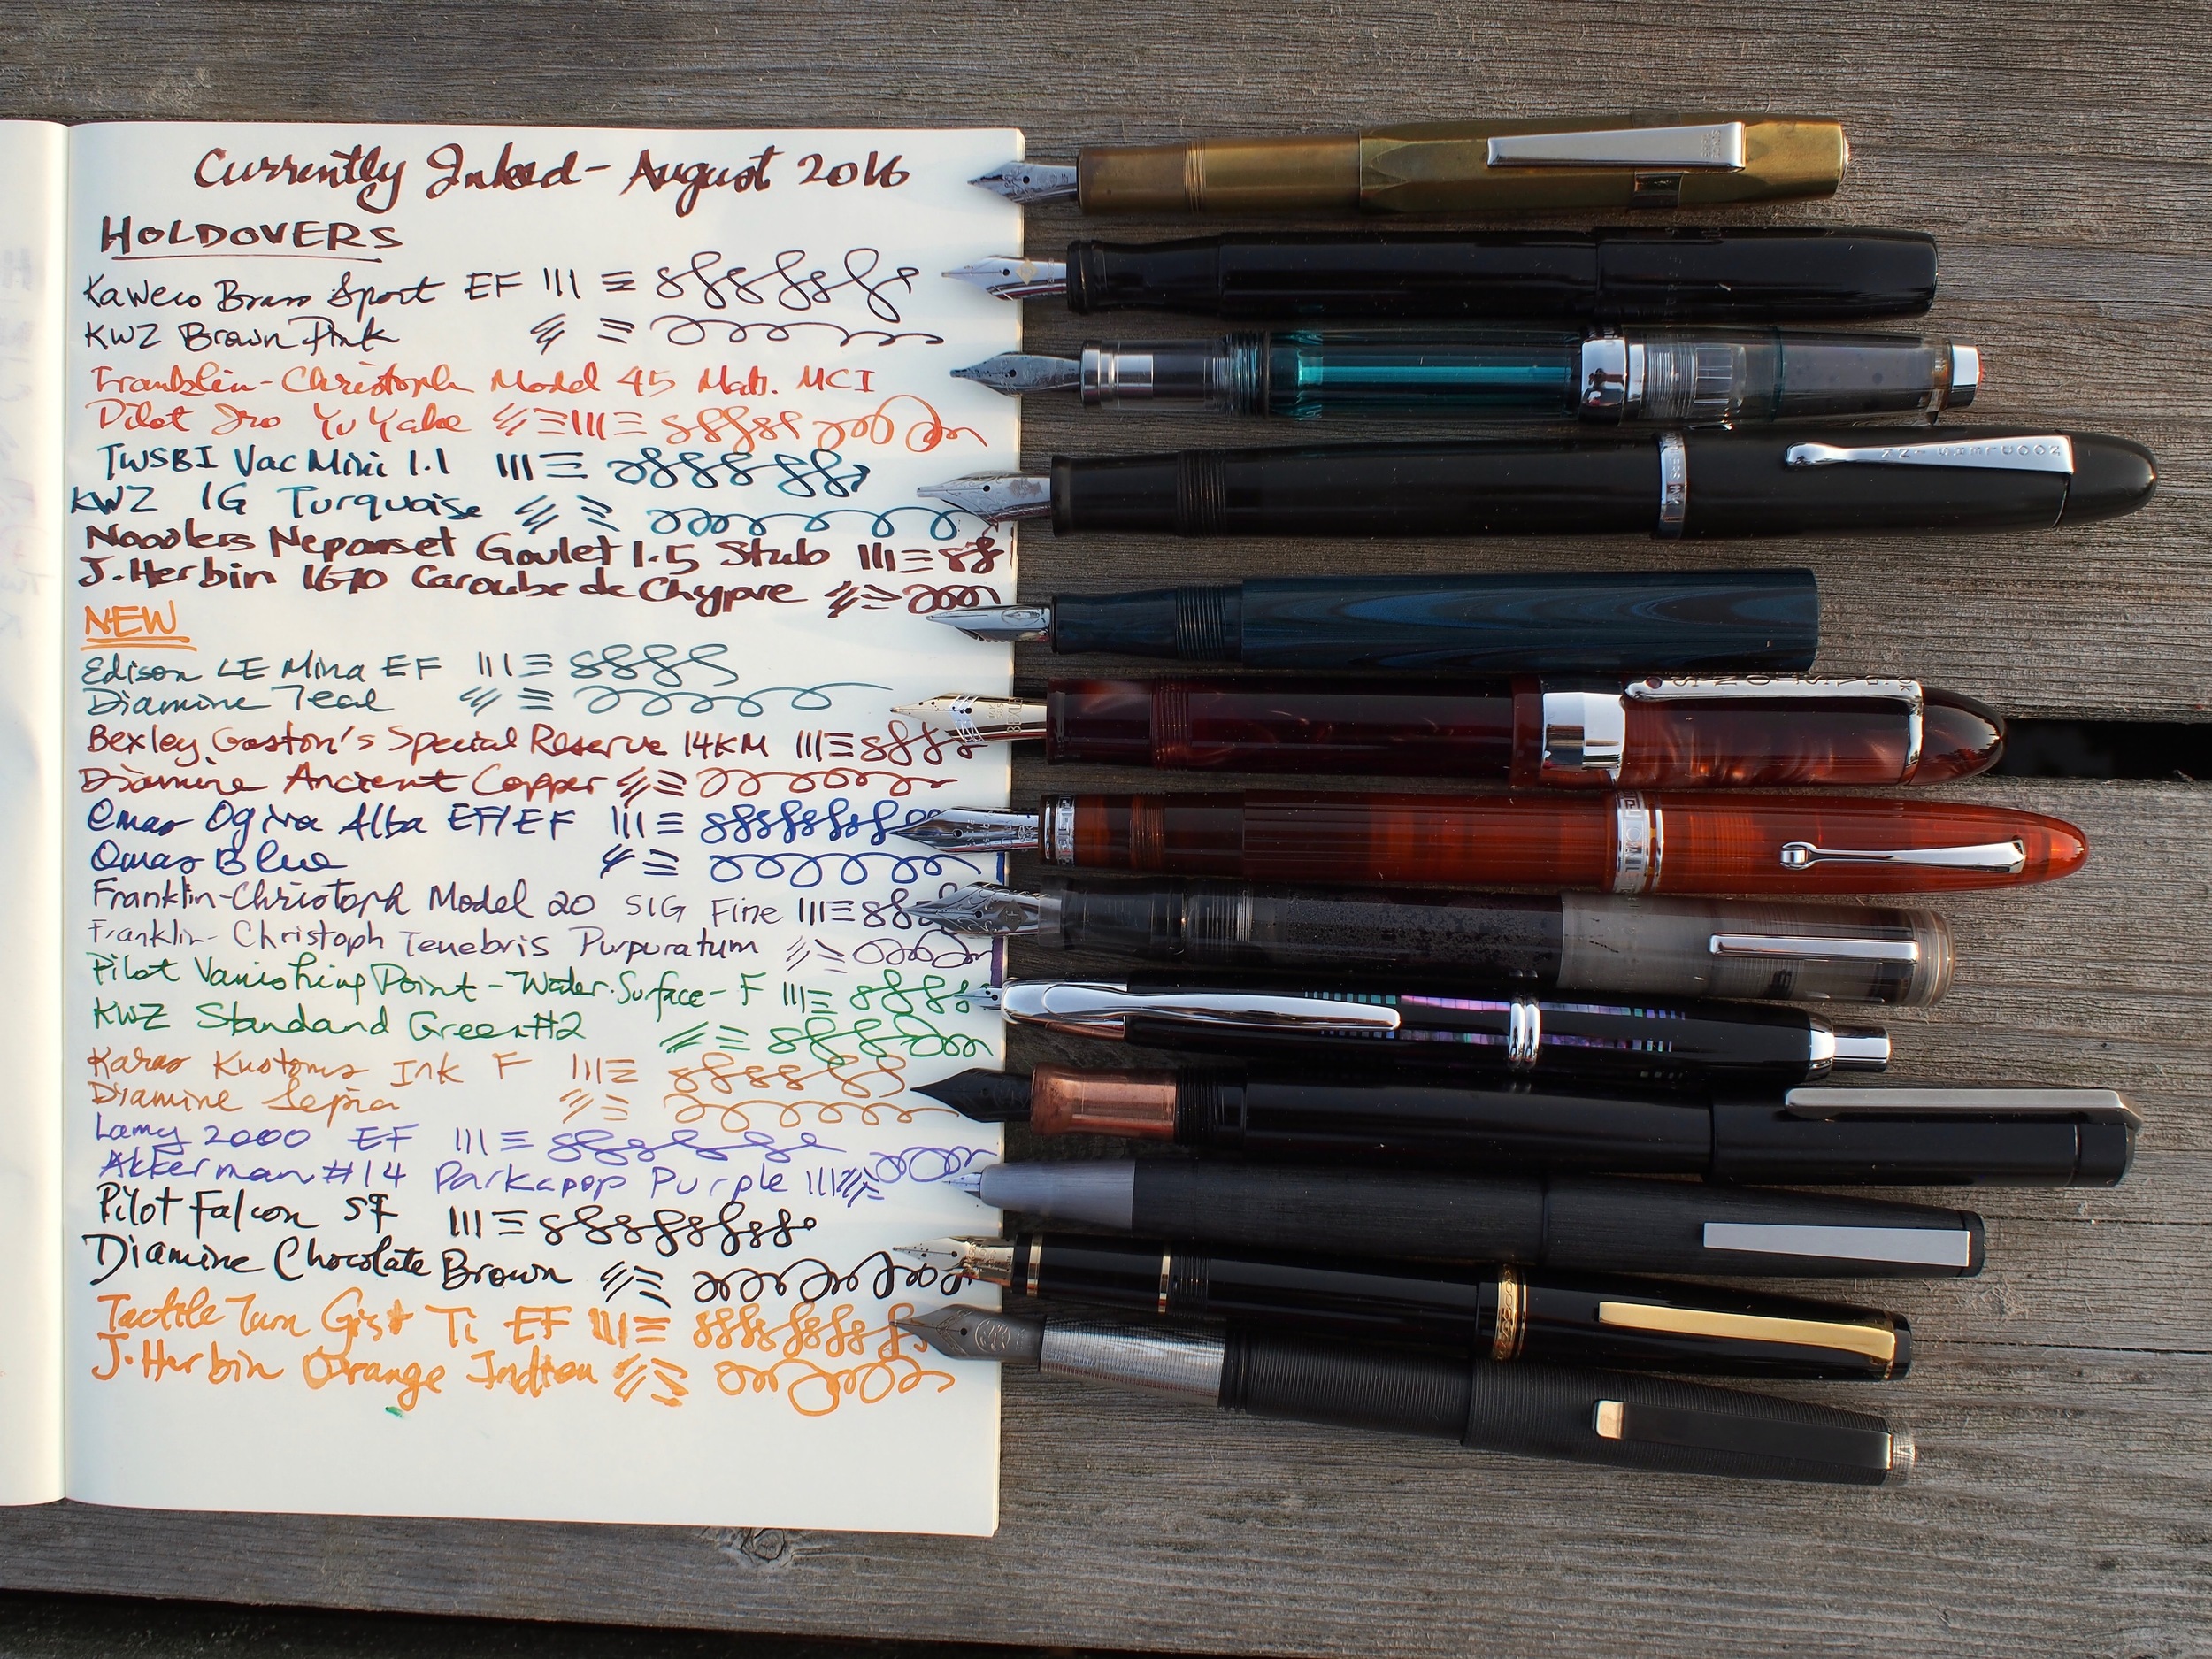 Currently Inked - August 2016
HOLDOVERS
Kaweco Brass Sport EF
KWZ Brown Pink
Franklin-Christoph Model 45 Matt. MCI
Pilot Iro Yu Yake
TWSBI Vac Mini 1.1
KWZ IG Turquoise
Noodlers Neponset Goulet 1.5 Stub
J. Herbin 1670 Caroube de Chypre
NEW
Edison LE Mina EF
Diamine Teal
Bexley Gaston's Special Reserve 14K M
Diamine Ancient Copper
Omas Ogiva Alba EF/EF
Omas Blue
Franklin-Christoph Model 20 SIG Fine
Franklin-Christoph Tenebris Purpuratum
Pilot Vanishing Point - Water Surface - F
KWZ Standard Green #2
Karas Kustoms Ink F
Diamine Sepia
Lamy 2000 EF
Akkerman #14 Parkpop Purple
Pilot Falcon SF
Diamine Chocolate Brown
Tactile Turn Gist Ti EF
J. Herbin Orange Indien